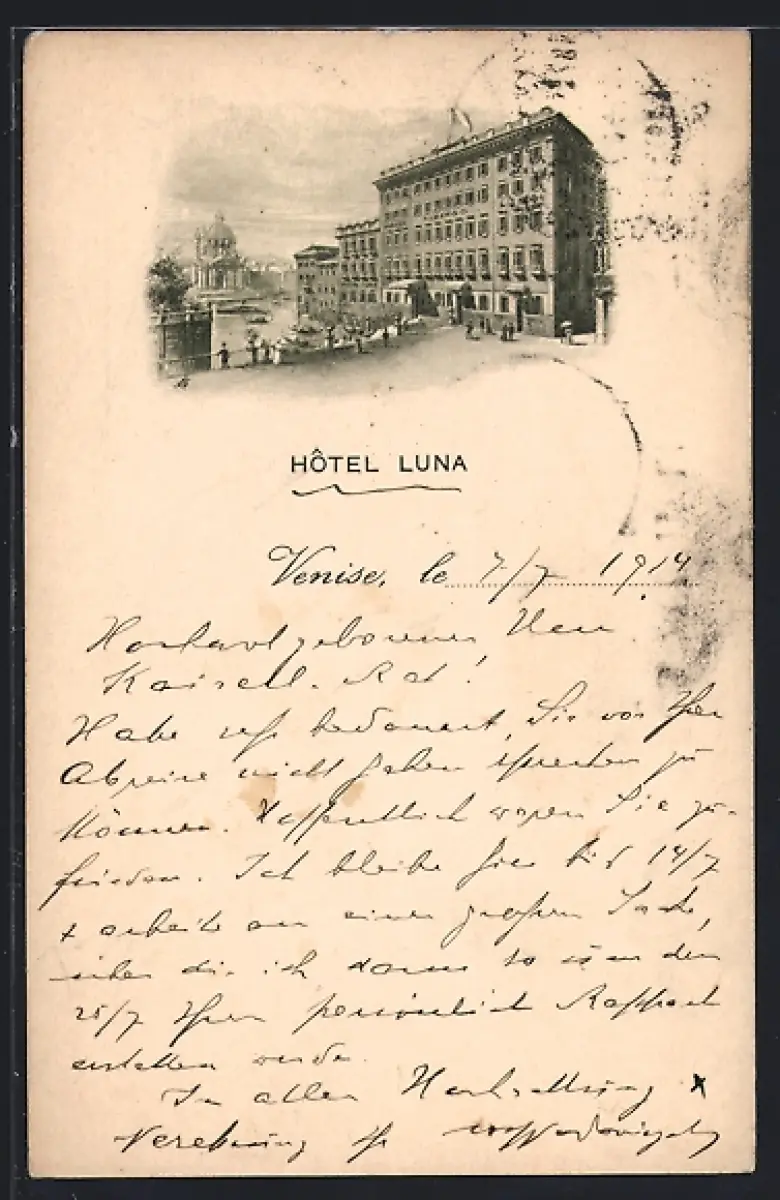 HÔTEL LUNA
Venise, le 7/7 1914
Hochwolgeborener Herr
Kaiserl. Rat!
Habe sehr bedauert, Sie vor Ihrer
Abreise nicht sehen sprechen zu
können. Hoffentlich waren Sie zu-
frieden. Ich bleibe hier bis 14/7
+ arbeite an einer großen Sache,
über die ich dann so um den
25/7 Ihnen persönlich Rapport
erstatten werde.
In aller Hochachtung +
Verehrung Ihr